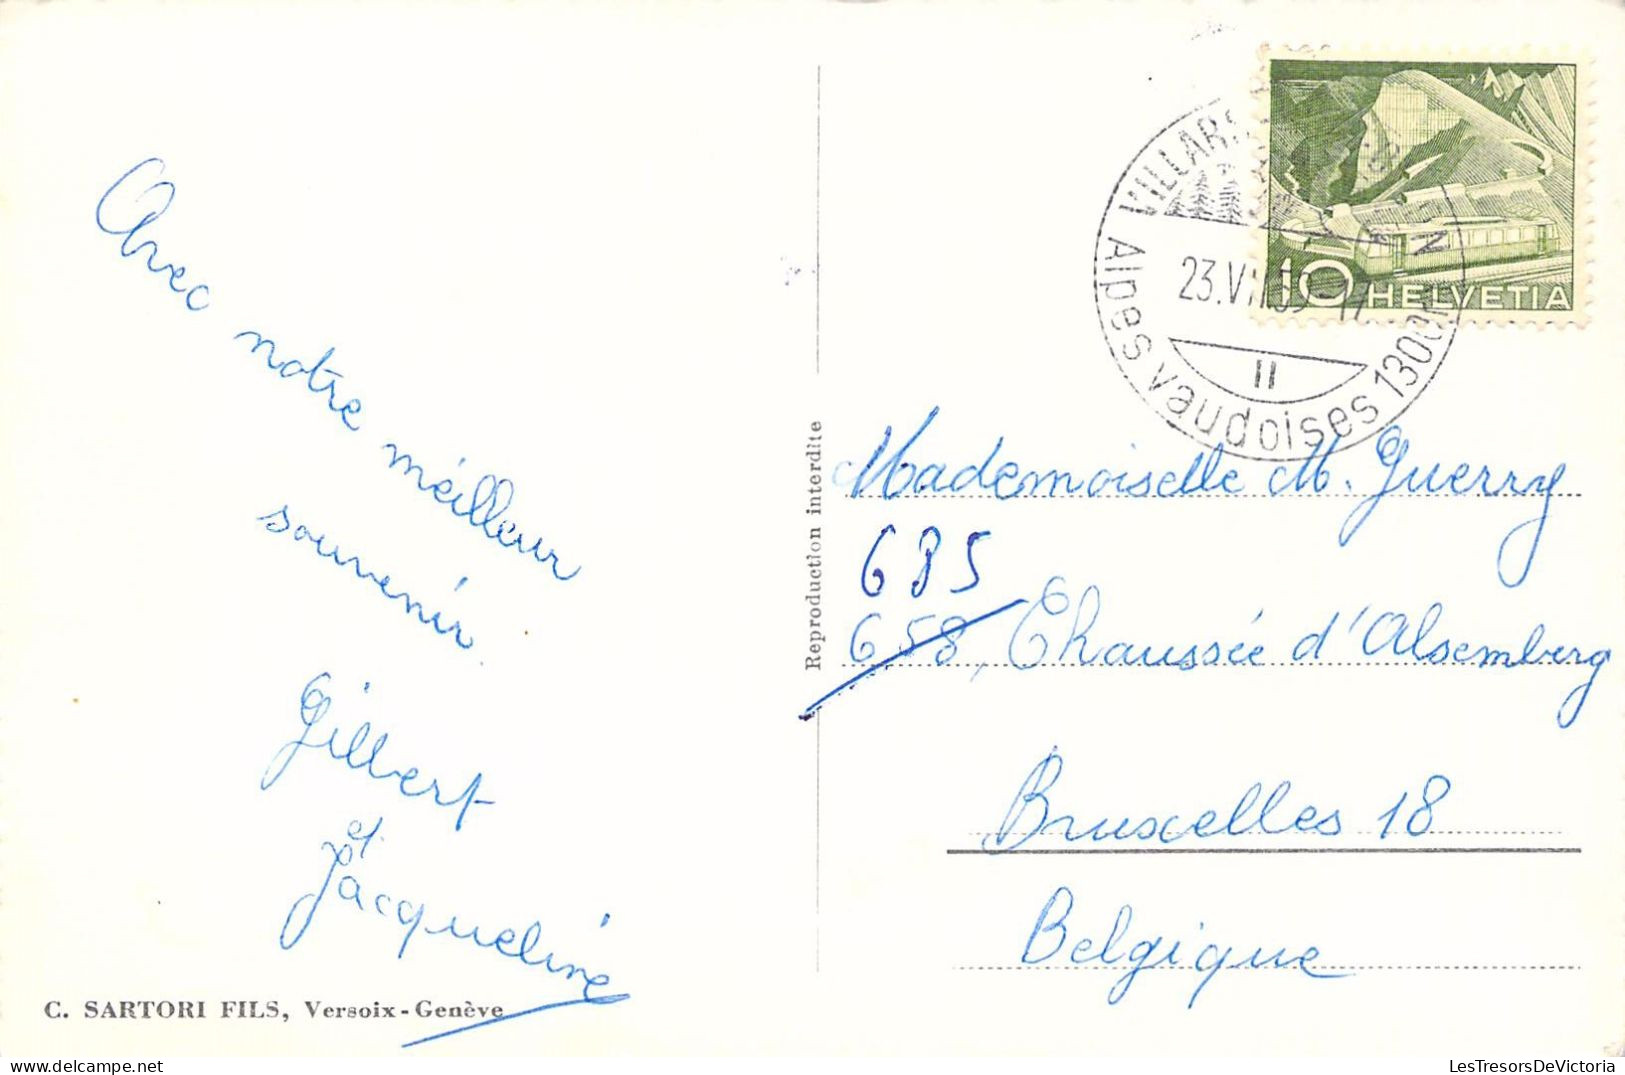 Avec
notre
méilleur
souvenir
Gilbert
et
Jacqueline
C. SARTORI FILS, Versoix-Genève
Reproduction interdite
VILLARS
23.VII.59-17
II
Alpes vaudoises 1300m
10 HELVETIA
Mademoiselle M. Guerry
685
658, Chaussée d'Alsemberg
Bruxelles 18
Belgique
LesTresorsDeVictoria